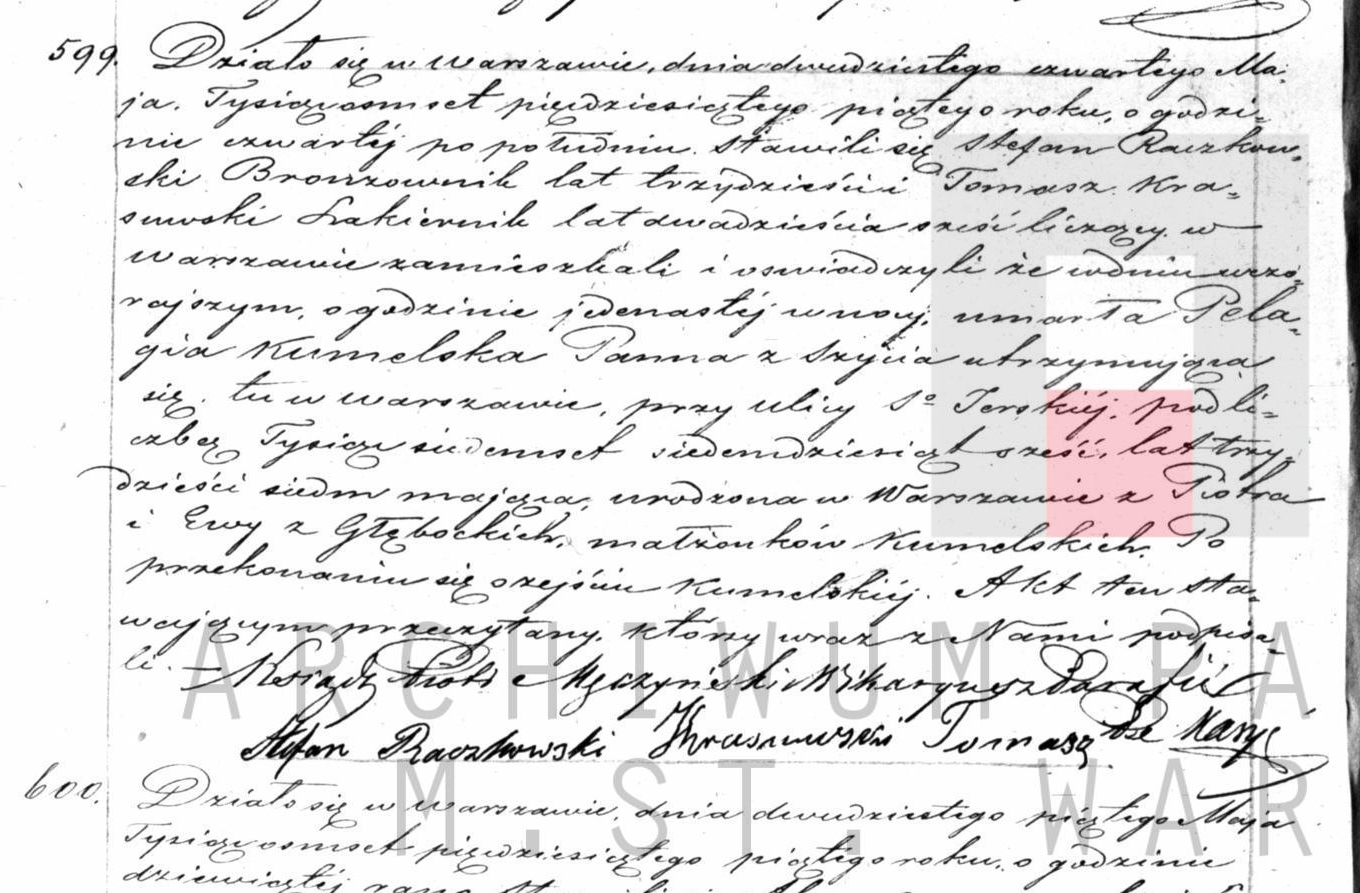 599. Działo się w Warszawie, dnia dwudziestego czwartego Ma-
ja, Tysiąc osmset pięćdziesiątego piątego roku, o godzi-
nie czwartéj po południu. Stawili się Stefan Raczkow-
ski Bronzownik lat trzydzieści i Tomasz Kra-
suwski Lakiernik lat dwadzieścia sześć liczący w
Warszawie zamieszkali i oswiadczyli że w dniu wczo-
rajszym, o godzinie jedenastéj w nocy, umarła Pela-
gia Kumelska Panna z szycia utrzymująca
się, tu w Warszawie, przy ulicy Sto Jerskiéj, pod li-
czbą Tysiąc siedemset siedemdziesiąt sześć, lat trzy-
dzieści siedm mająca, urodzona w Warszawie z Piotra
i Ewy z Głębockich, małżonków Kumelskich. Po
przekonaniu się o zejściu Kumelskiéj. Akt ten sta-
wającym przeczytany, którzy wraz z Nami podpisa-
li. – Ksiądz Piotr Męczyński Wikaryusz Parafii
Stefan Raczkowski Krasuwski Tomasz Na Maryi
600. Działo się w Warszawie, dnia dwudziestego piątego Maja
Tysiąc osmset pięćdziesiątego piątego roku, o godzinie
dziewiątéj rano
ARCHIWUM PA
M.ST. WAR